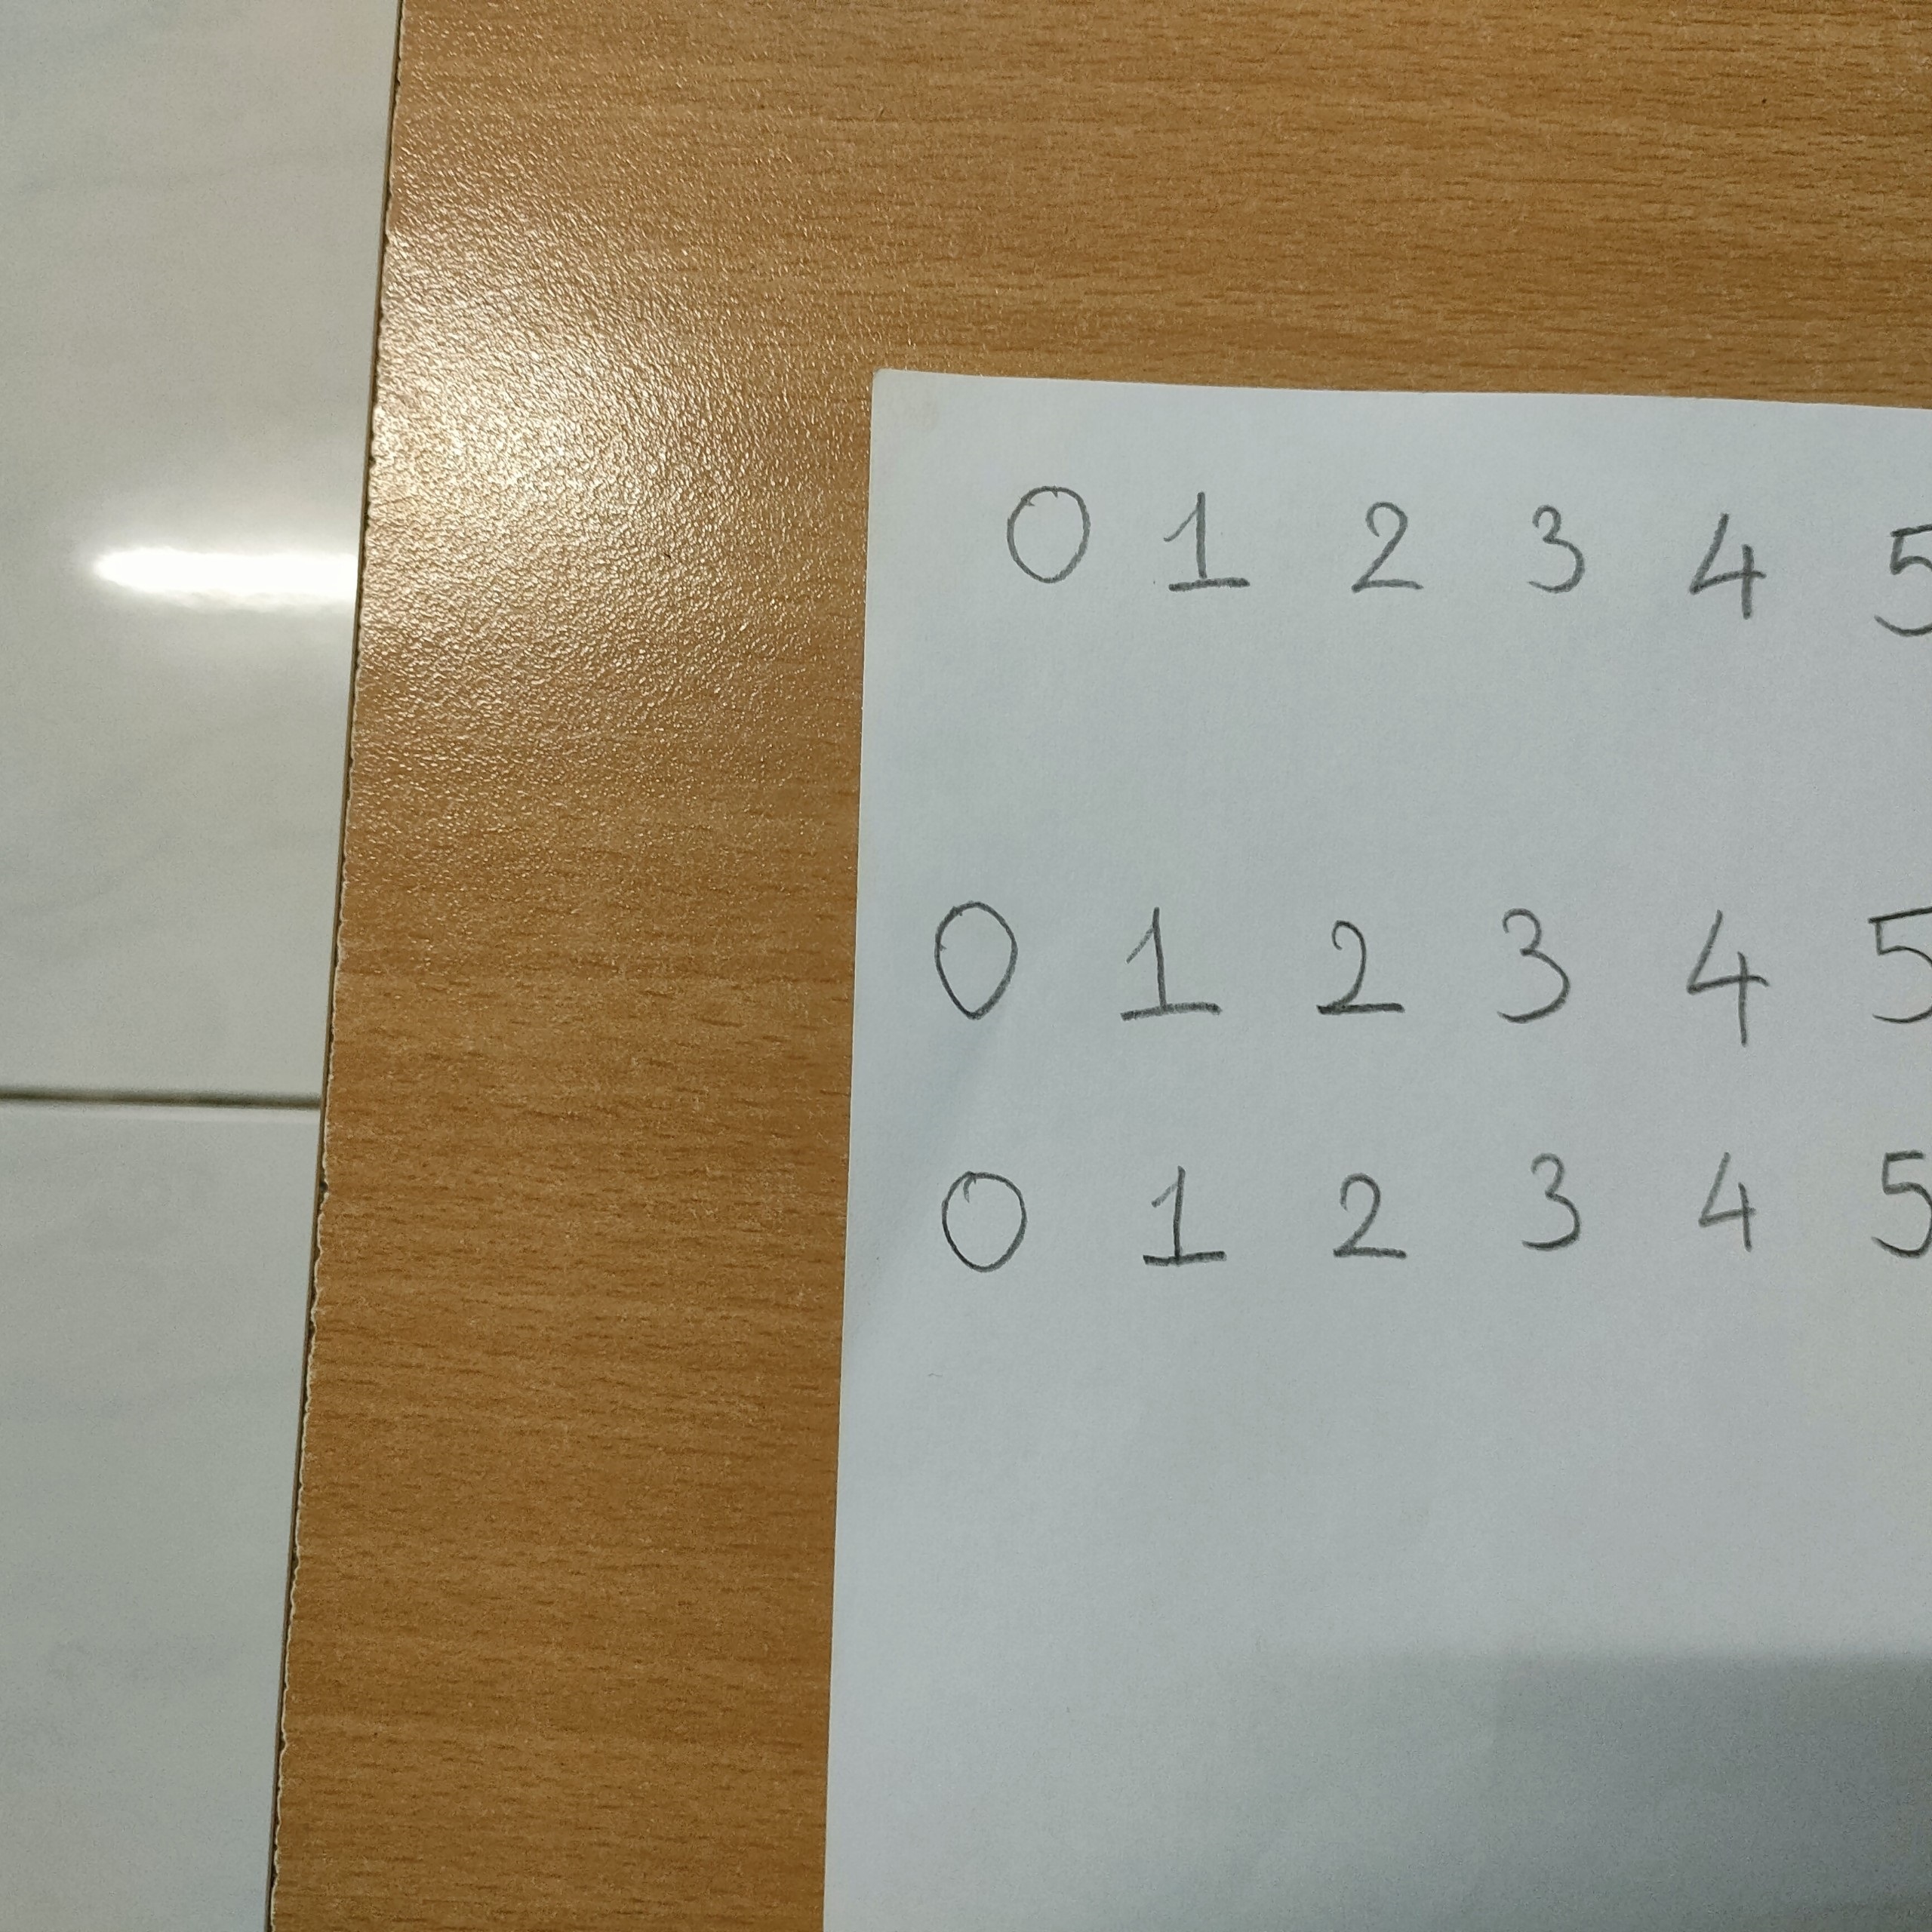 0 1 2 3 4 5
0 1 2 3 4 5
0 1 2 3 4 5